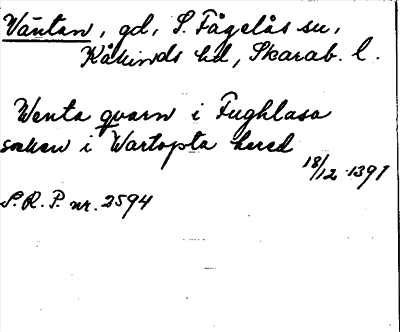 Väntan, gd, S. Fågelås sn,
Kåkinds hd, Skarab. l.
Wenta qvarn i Fughlasa
soknen i Wartopta hered
18/12 1391
S.R.P. nr. 2594